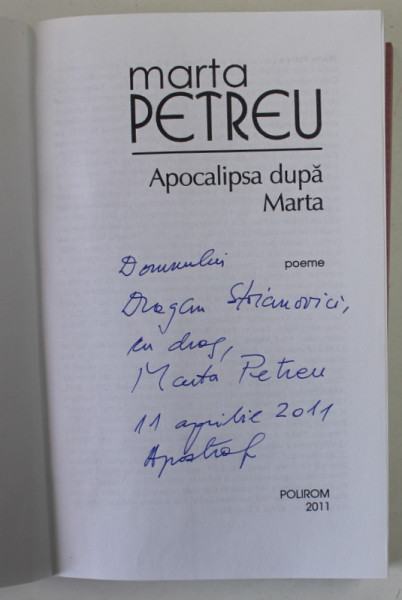 marta
PETREU
Apocalipsa după
Marta
poeme
Domnului
Dragan Stoianovici,
cu drag,
Marta Petreu
11 aprilie 2011
Apostrof
POLIROM
2011